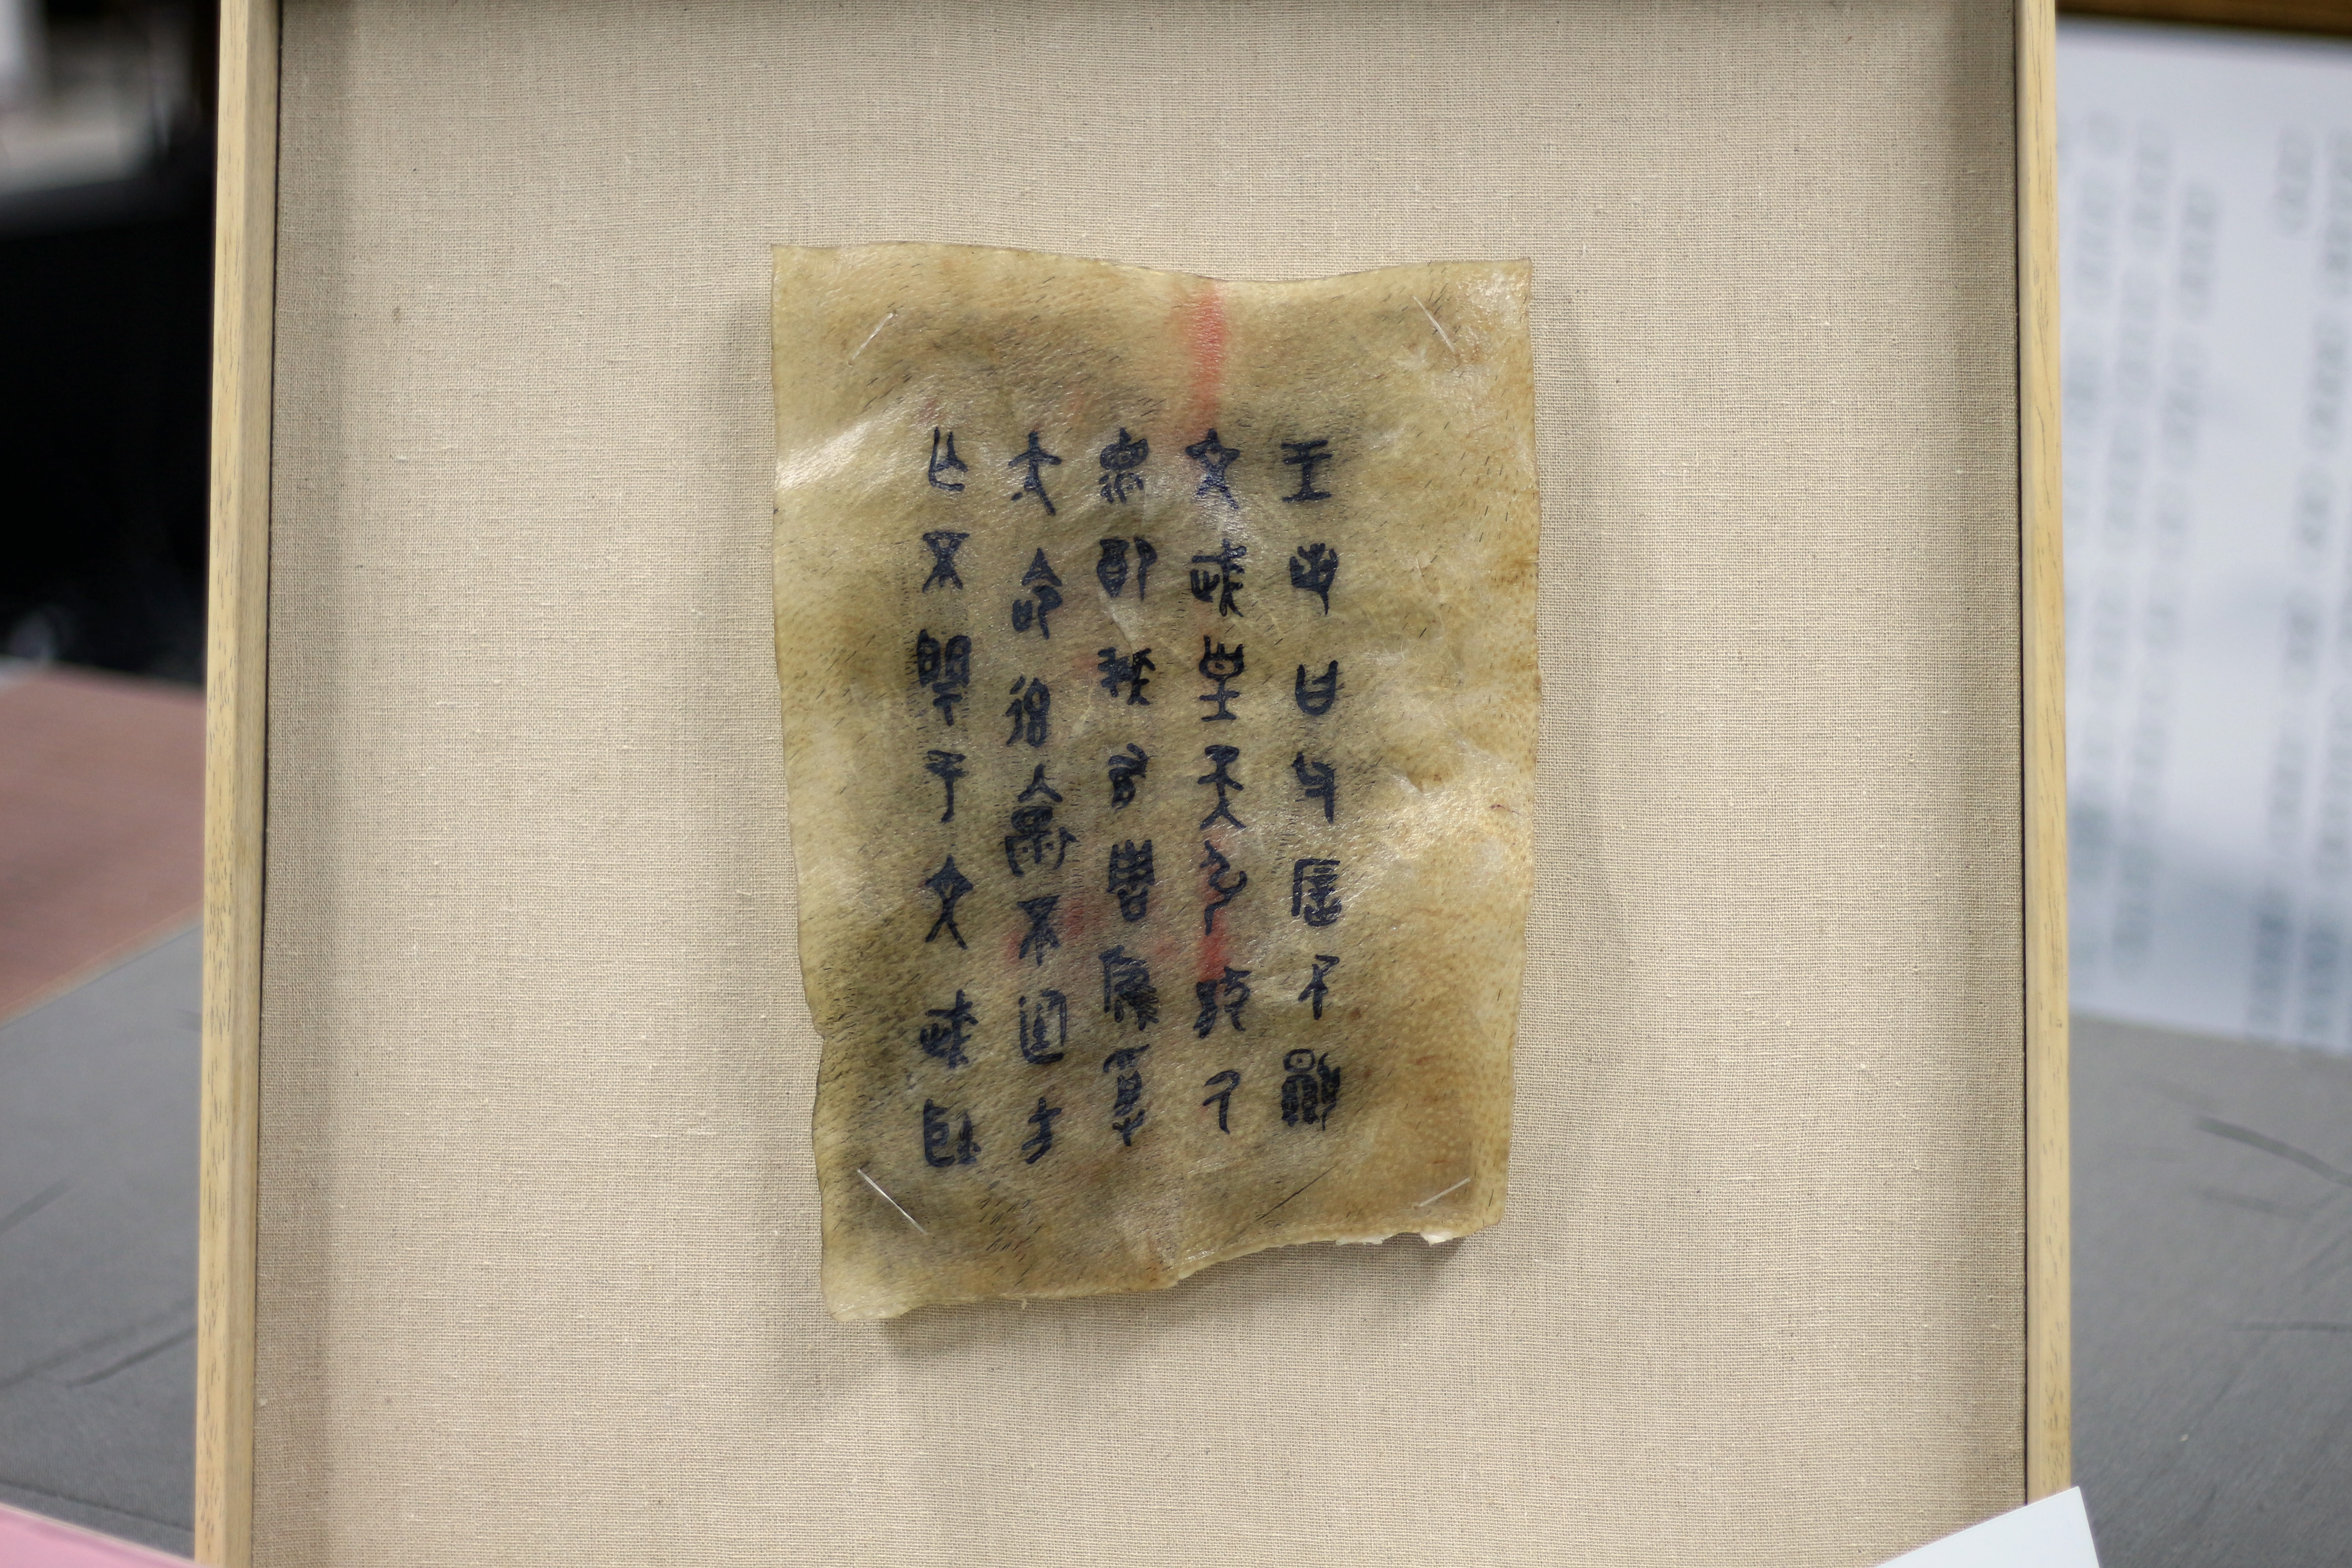 王若曰父㕌不顯
文武皇天引猒厥
德配我有周膺受
大命率懷不廷方
亡不閈于文武耿